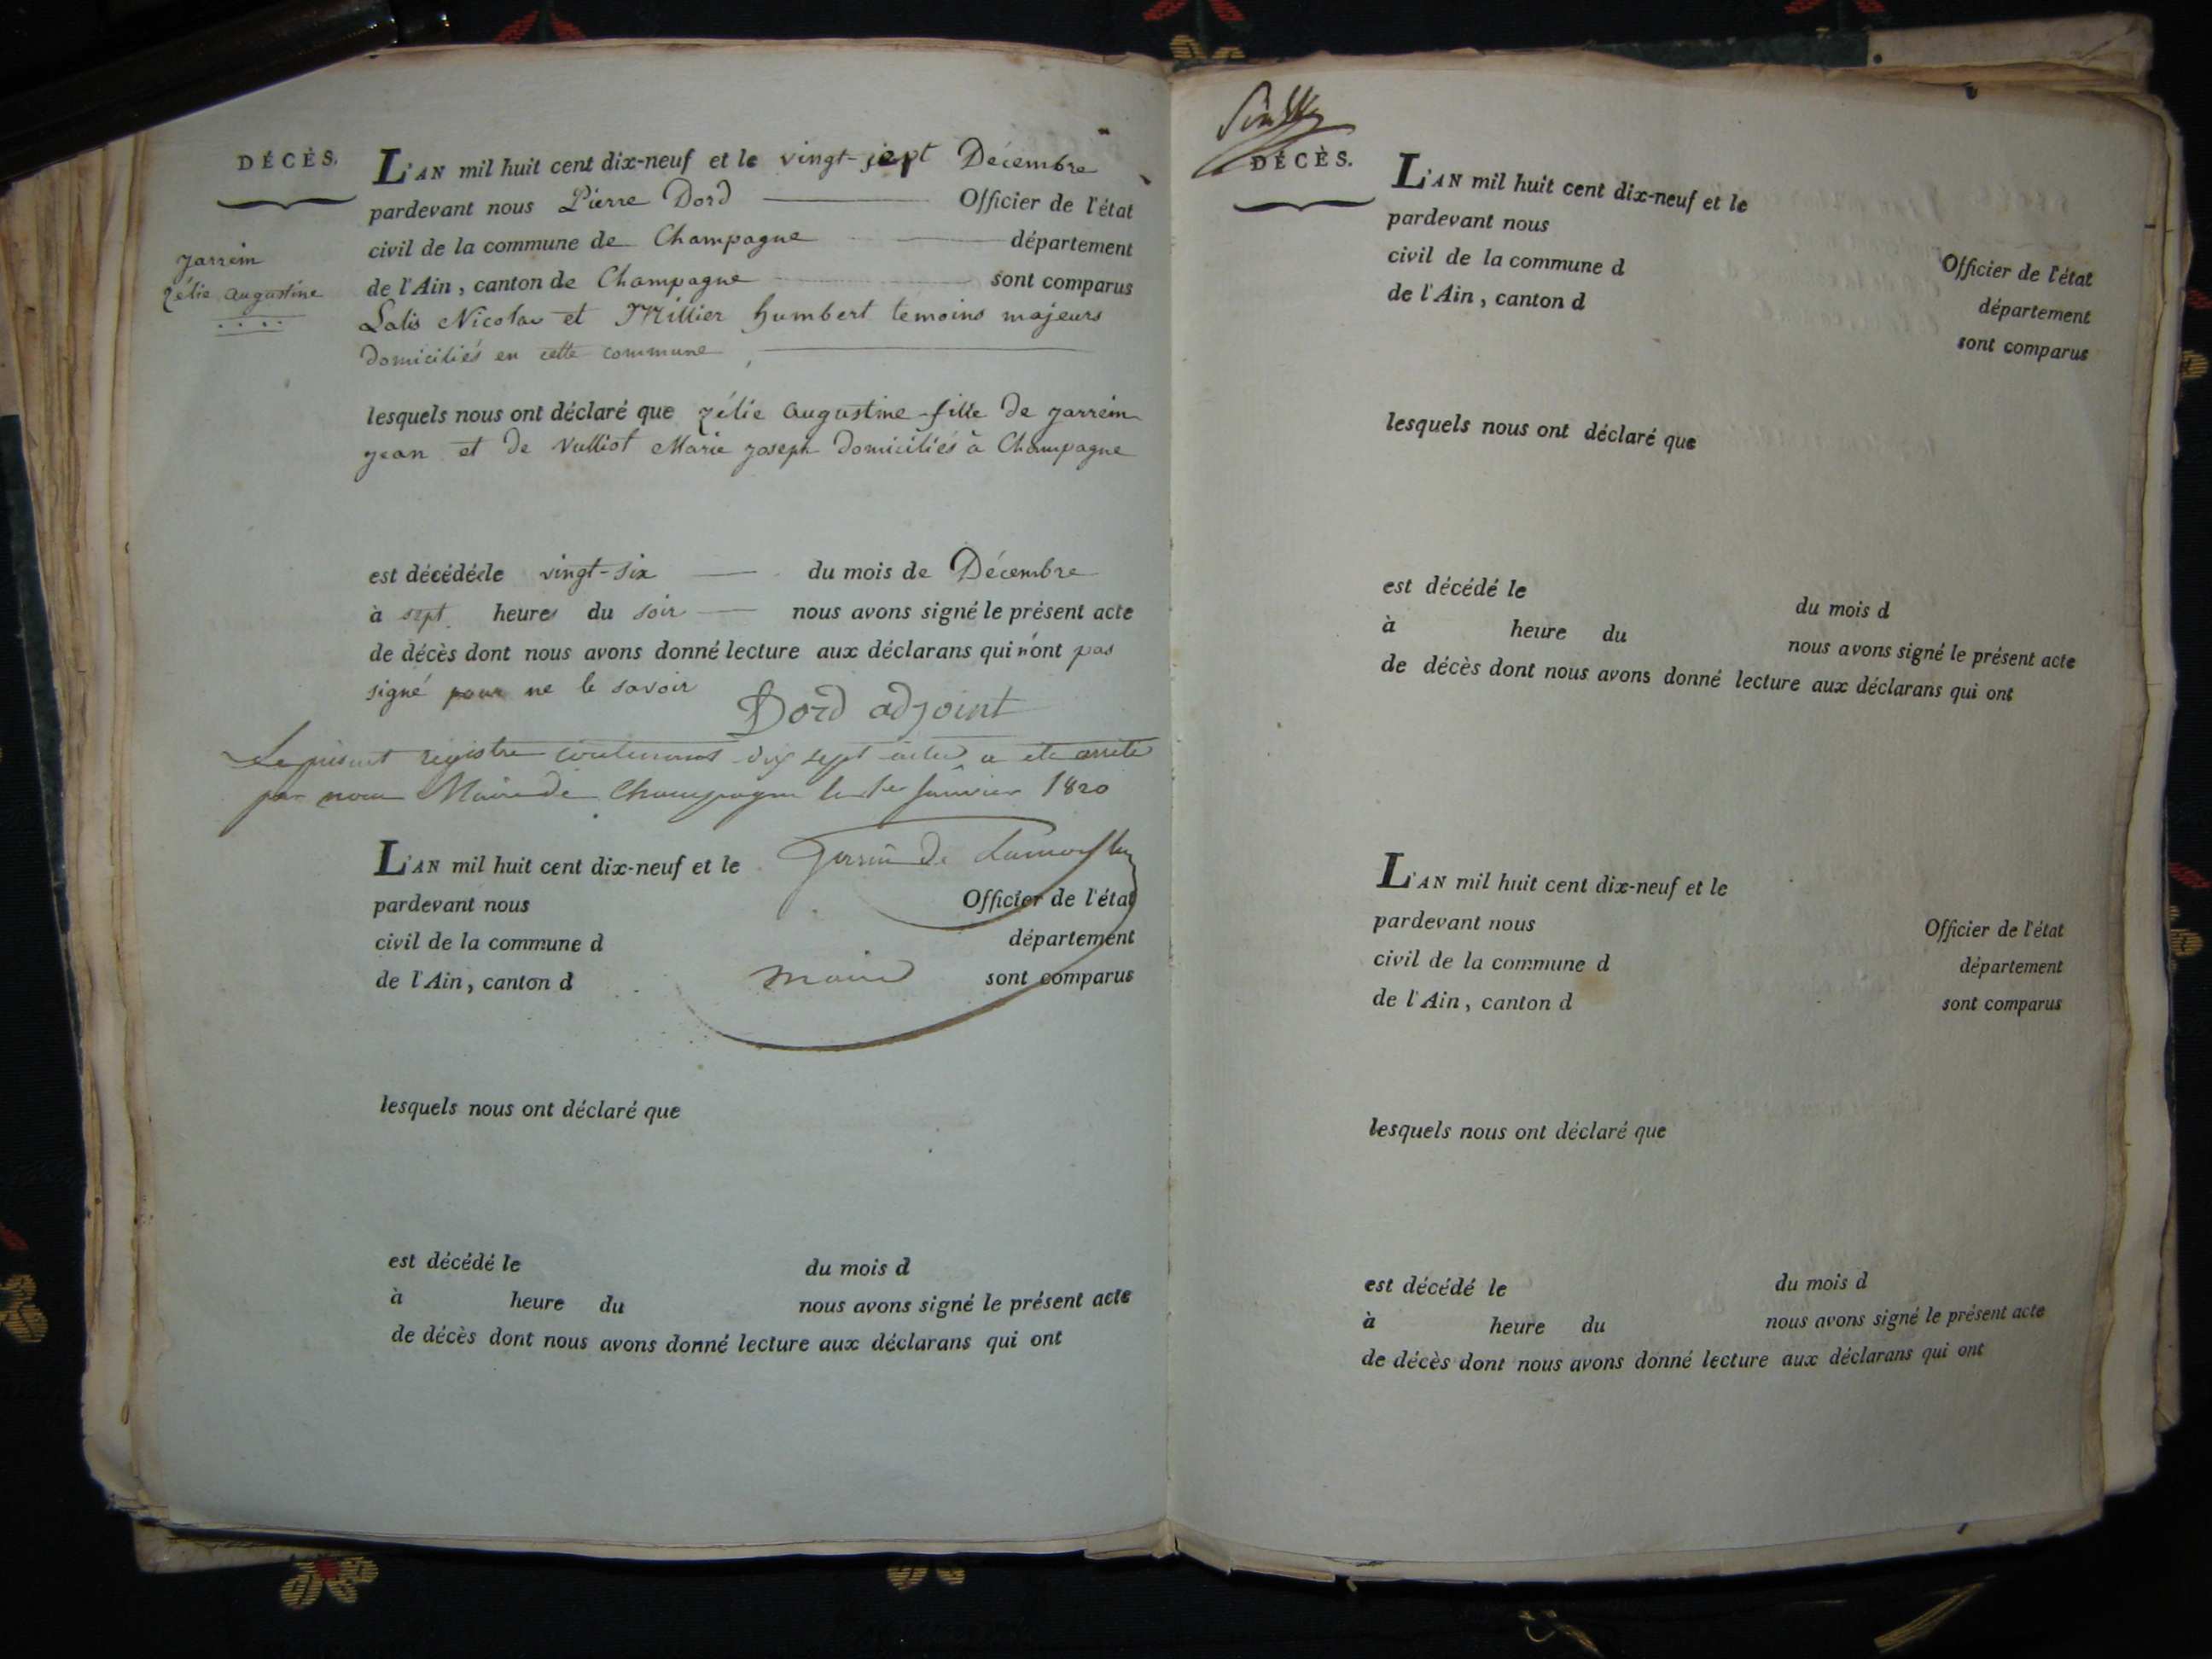 DÉCÈS.
L'AN mil huit cent dix-neuf et le vingt-sept Décembre
pardevant nous Pierre Dord Officier de l'état
civil de la commune de Champagne département
de l'Ain, canton de Champagne sont comparus
Lalis Nicolas et Millier humbert temoins majeurs
Domiciliés en cette commune
jarrein
zélie augustine
lesquels nous ont déclaré que zélie augustine fille de jarrein
jean et de Vulliot Marie joseph Domiciliés à Champagne
est décédée le vingt-six du mois de Décembre
à sept heures du soir nous avons signé le présent acte
de décès dont nous avons donné lecture aux déclarans qui n'ont pas
signé pour ne le savoir
Dord adjoint
Le présent registre contenant dix sept actes a été arrêté
par nous Maire de Champagne le 1er janvier 1820
L'AN mil huit cent dix-neuf et le
pardevant nous Officier de l'état
civil de la commune d département
de l'Ain, canton d sont comparus
maire
lesquels nous ont déclaré que
est décédé le du mois d
à heure du nous avons signé le présent acte
de décès dont nous avons donné lecture aux déclarans qui ont
DÉCÈS.
L'AN mil huit cent dix-neuf et le
pardevant nous Officier de l'état
civil de la commune d département
de l'Ain, canton d sont comparus
lesquels nous ont déclaré que
est décédé le du mois d
à heure du nous avons signé le présent acte
de décès dont nous avons donné lecture aux déclarans qui ont
L'AN mil huit cent dix-neuf et le
pardevant nous Officier de l'état
civil de la commune d département
de l'Ain, canton d sont comparus
lesquels nous ont déclaré que
est décédé le du mois d
à heure du nous avons signé le présent acte
de décès dont nous avons donné lecture aux déclarans qui ont